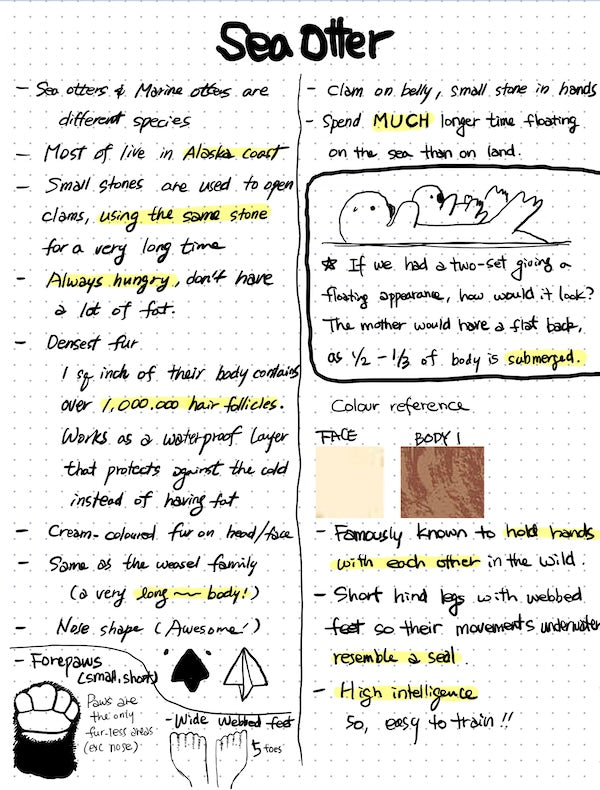 Sea Otter
- Sea otters & Marine otters are
different species
- Most of live in Alaska coast
- Small stones are used to open
clams, using the same stone
for a very long time
- Always hungry, don't have
a lot of fat.
- Densest fur
1 sq inch of their body contains
over 1,000.000 hair follicles.
Works as a waterproof layer
that protects against the cold
instead of having fat
- Cream-coloured fur on head/face
- Same as the weasel family
(a very long ~~ body!)
- Nose shape (Awesome!)
- Forepaws
(small, short)
Paws are
the only
fur-less areas
(exc nose)
- Wide Webbed feet
5 toes
- Clam on belly, small stone in hands
- Spend MUCH longer time floating
on the sea than on land.
☆ If we had a two-set giving a
floating appearance, how would it look?
The mother would have a flat back,
as 1/2 - 1/3 of body is submerged.
Colour reference
FACE
BODY 1
- Famously known to hold hands
with each other in the wild.
- Short hind legs with webbed
feet so their movements underwater
resemble a seal.
- High intelligence
So, easy to train!!